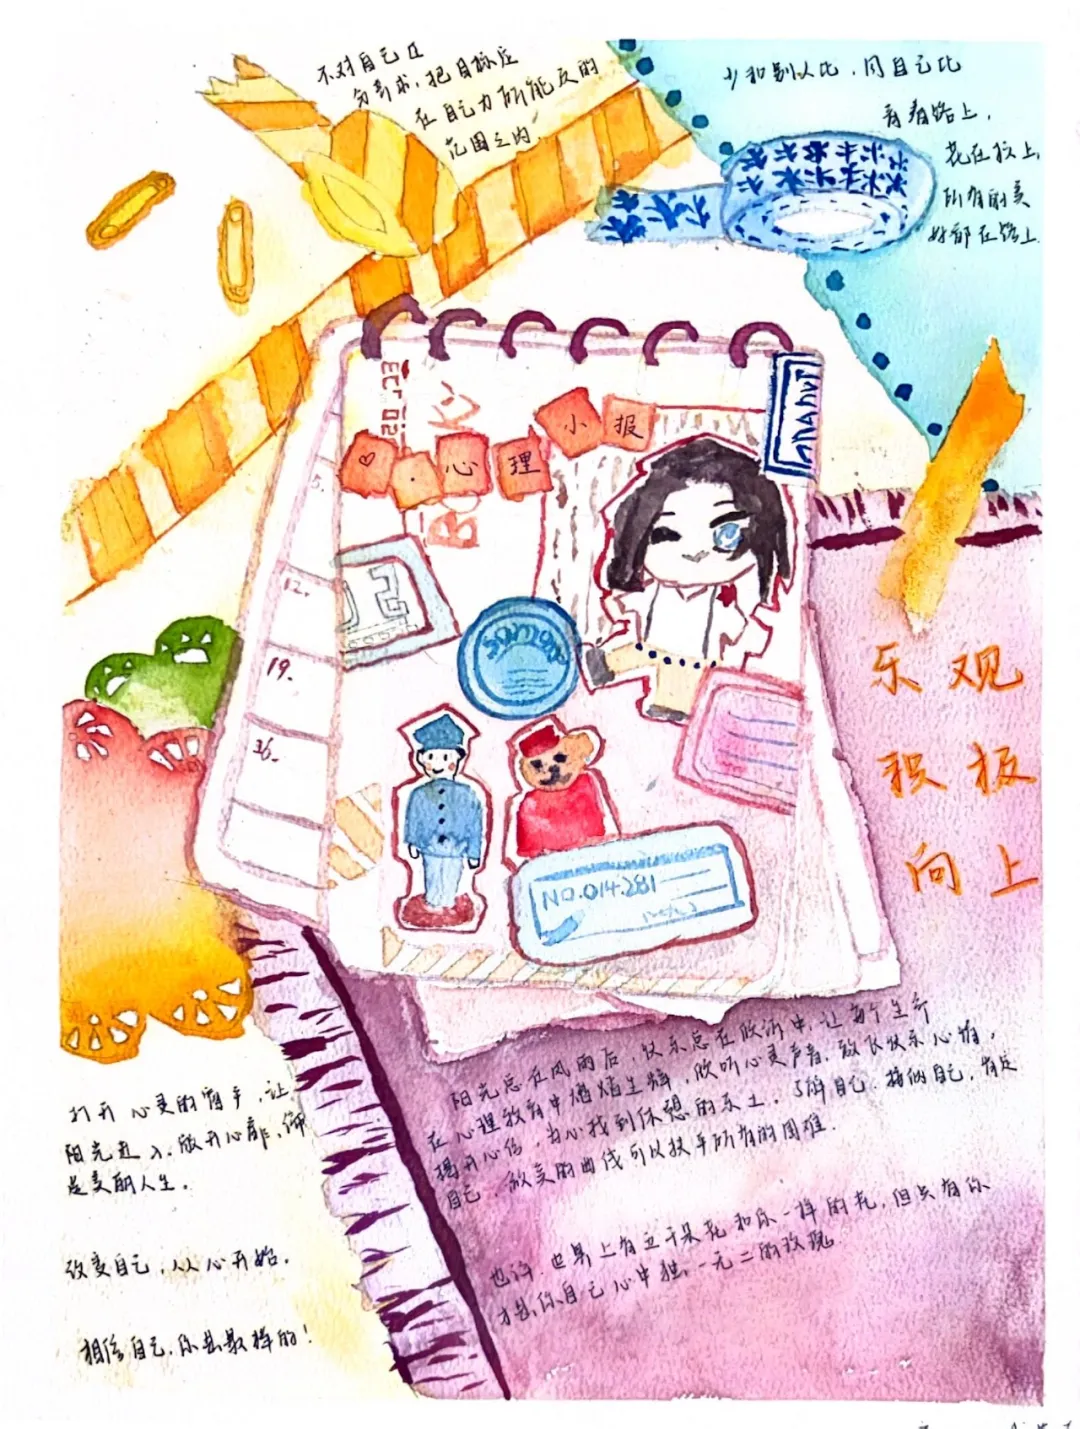 不对自己过
分苛求，把目标定
在自己力所能及的
范围之内.
少和别人比，同自己比
青春路上，
花在枝上
所有的美
好都在路上.
ECr 02
心理
小报
5.
12.
19.
26.
NO.014.281
乐观
积极
向上
阳光总在风雨后，快乐总在欣沂中，让每个生命
在心理教育中熠熠生辉，欣听心灵声音，放飞快乐心情，
揭开心伤，为心找到休憩的乐土，了解自己，接纳自己，肯定
自己，放美的曲线可以抚平所有的困难.
也许，世界上有五千朵花和你一样的花，但只有你
才是，你自己心中独一无二的玫瑰.
打开心灵的窗户，让
阳光进入，放开心扉，
是美丽人生。
改变自己，从心开始.
相信自己，你是最棒的！